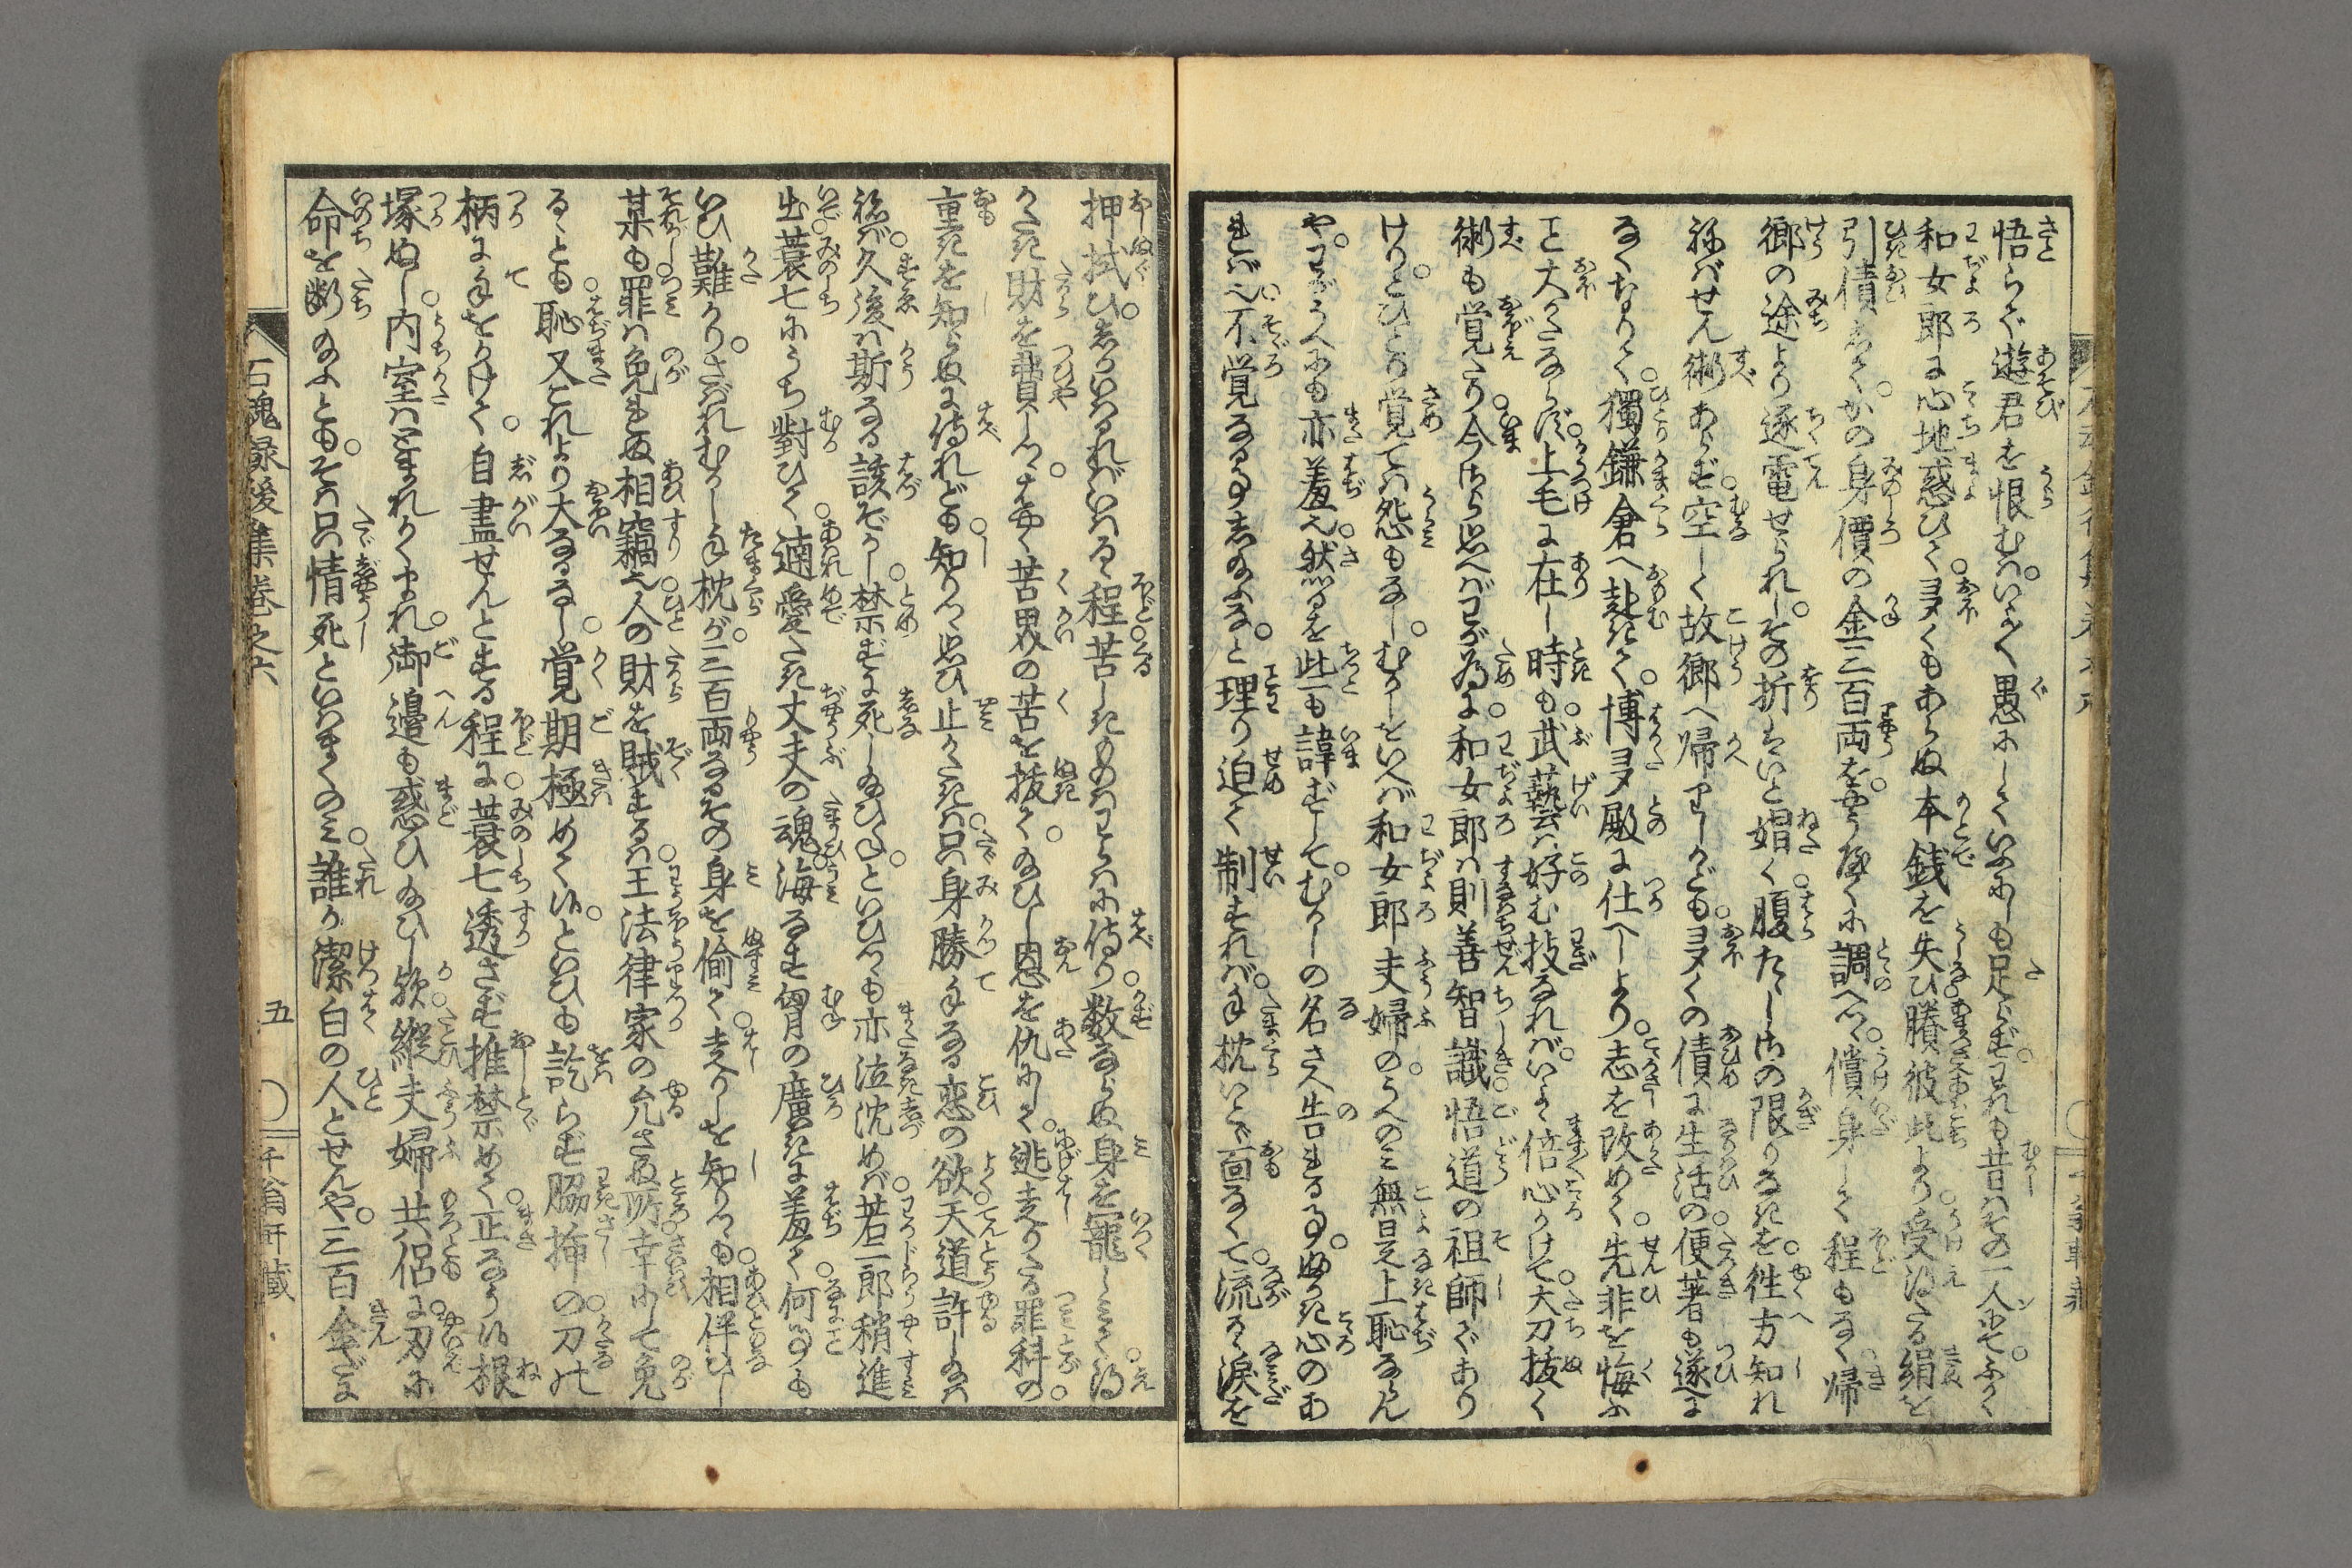 悟らで遊君を恨むハいよ〳〵愚にしていふにしも足らずわれも昔ハその一人にてふかく
和女郎に心地惑ひて多くもあらぬ本銭を失ひ賸彼此より受得たる絹を
引債してかの身價の金三百両をやうやくに調へて償身して程もなく帰
郷の途より逐電せられしその折はいと媢く腹たゝしさの限りなきを往方知れ
ねばせん術あらず空しく故郷へ帰りしかども多くの債に生活の便著も遂に
なくなりて獨鎌倉へ赴きて博多殿に仕へしより志を改めて先非を悔ふ
こと大かたならず上毛に在し時も武藝ハ好む技なればいよゝ倍心かけて大刀抜く
術も覚たり今さら思へばわが為に和女郎ハ則善智識悟道の祖師であり
けりとひとり覚てハ怨もなしむかしをいへば和女郎夫婦のうへのミ無上恥ならん
やわがうへにも亦羞也然るを此も諱ずしてむかしの名さへ告る事めゝしき心のあ
れば也不覚なる事しなふなと理り迫て制すれば手枕いとゞ面なくて流るゝ涙を
押拭ひしかいはるればいはるゝ程苦しきものハわらハに侍り数ならぬ身を寵しミて得
かたき財を費しつゝはやく苦界の苦を抜てたまひし恩を仇にして逃走りたる罪科の
重きを知らぬに侍れども知りつゝ思ひ止かたきハ只身勝手なる恋の欲天道許し給ハ
ねば久後ハ斯なる該ぞかし禁ずに死し給ひねといひつゝも亦泣沈めば若二郎稍進
出蓑七にうち對ひて遖愛たき丈夫の魂海なす胷の廣きに羞て何事も
いひ難かりさばれむかし手枕が三百両なるその身を偷て走りしを知りつゝも相伴ひし
某も罪ハ免れぬ相竊也人の財を賊するハ王法律家の允さぬ所幸にして免
るゝとも恥又これより大なるなし覚期極めて候といひも訖らず脇挿の刀の
柄に手をかけて自盡せんとする程に蓑七透さず推禁めて正なう候根
塚ぬし内室ハとまれかくまれ御邊も惑ひ給ひし歟縱夫婦共侶に刃に
命を断給ふともそハ只情死といはれんのミ誰か潔白の人とせんや三百金だに
石魂録後集巻之六
五
千翁軒藏